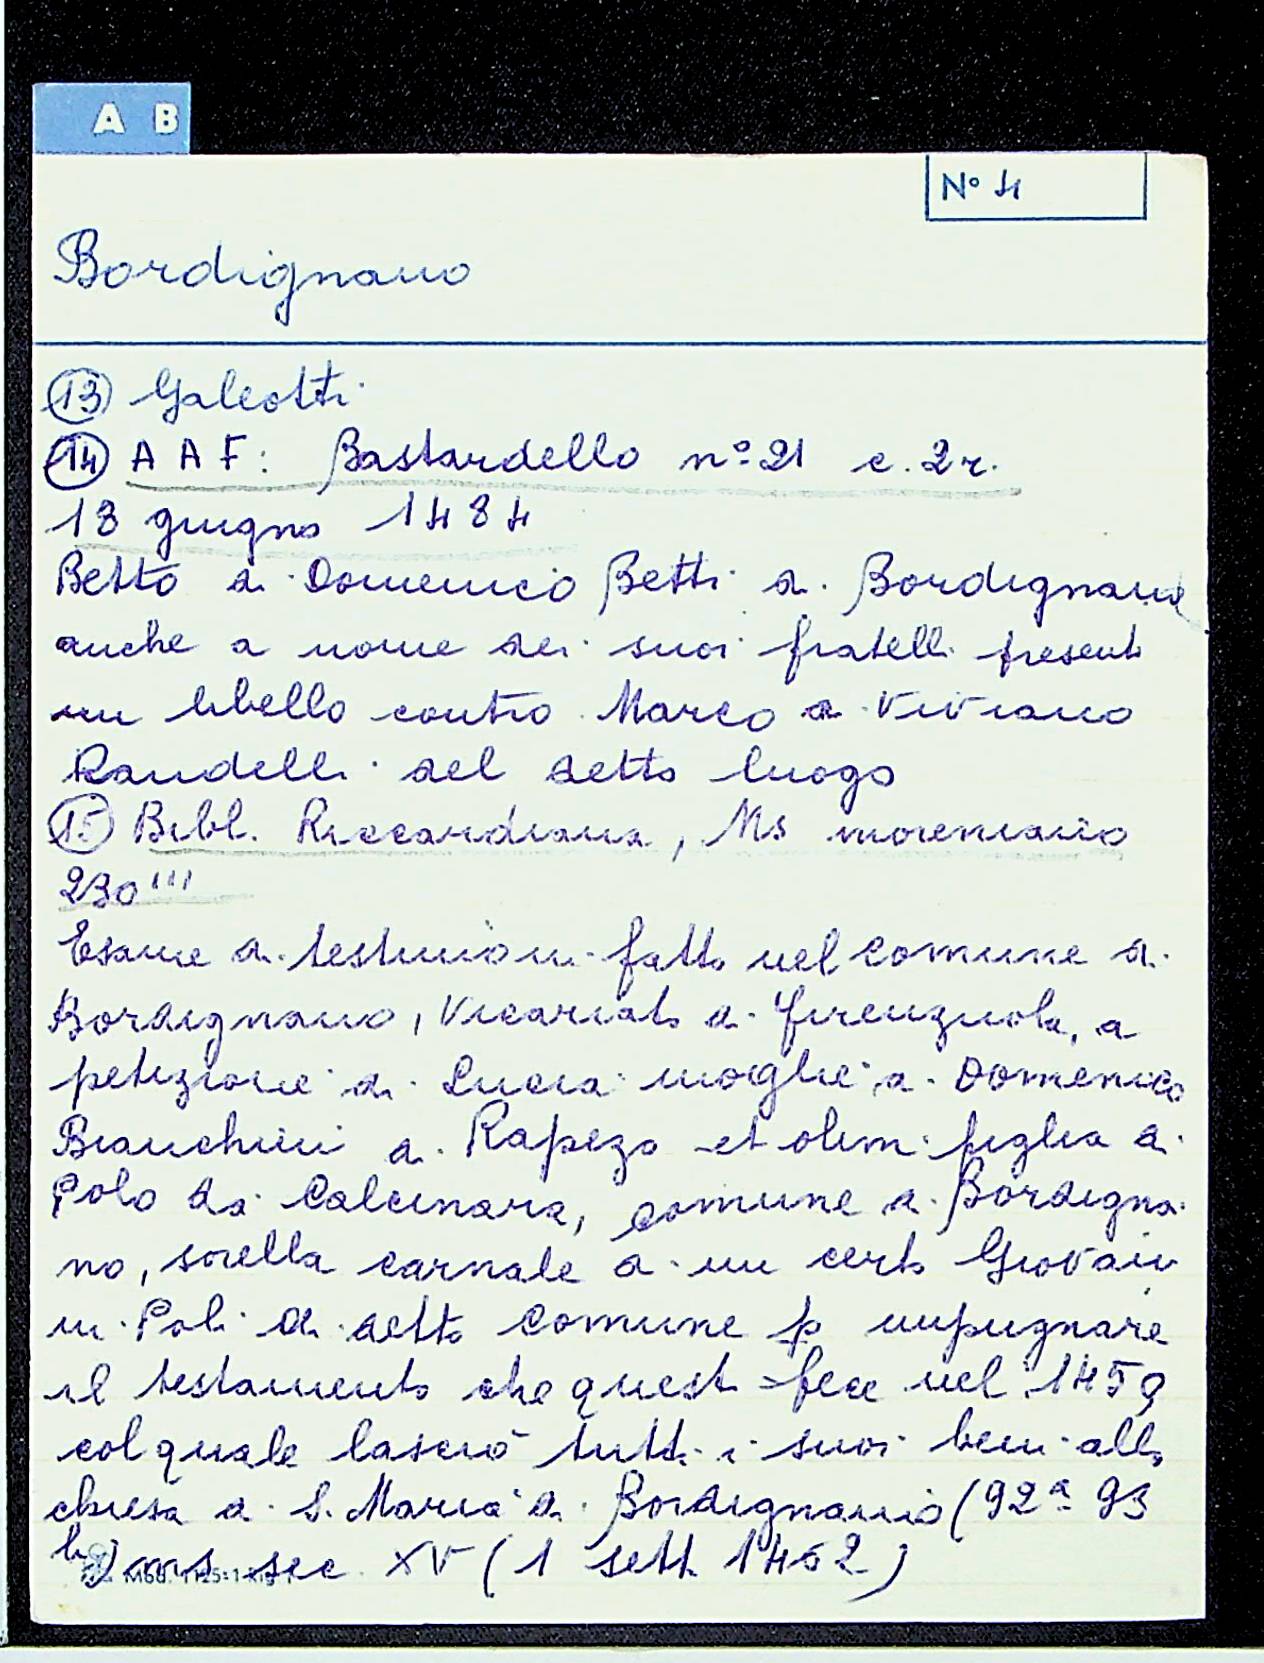 A B
N° 4
Bordignano
(13) Galeotti
(14) A A F: Bastardello n° 21 c. 2r.
18 giugno 1484
Betto di Domenico Betti di Bordignano
anche a nome dei suoi fratelli presenta
un libello contro Marco di Viviano
Randelli del detto luogo
(15) Bibl. Riccardiana, Ms moreniano
230'''
Esame di testimoni fatto nel comune di
Bordignano, Vicariato di Firenzuola, a
petizione di Lucia moglie di Domenico
Bianchini di Rapezo et olim figlia di
Polo da Calcinara, comune di Bordigna
no, sorella carnale di un certo Giovan
ni Poli di detto comune p impugnare
il testamento che questi fece nel 1459
col quale lasciò tutti i suoi beni alla
chiesa di S. Maria di Bordignano (92a 93
b) ms sec XV (1 sett 1462)